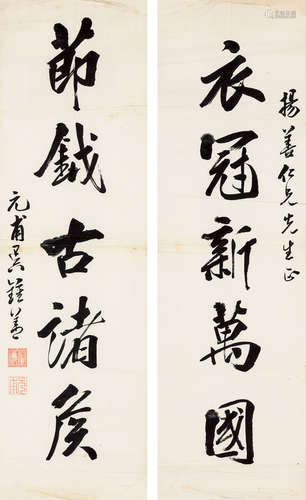 揚善仁兄先生正
衣冠新萬國
節鉞古諸侯
元甫吳鍾善